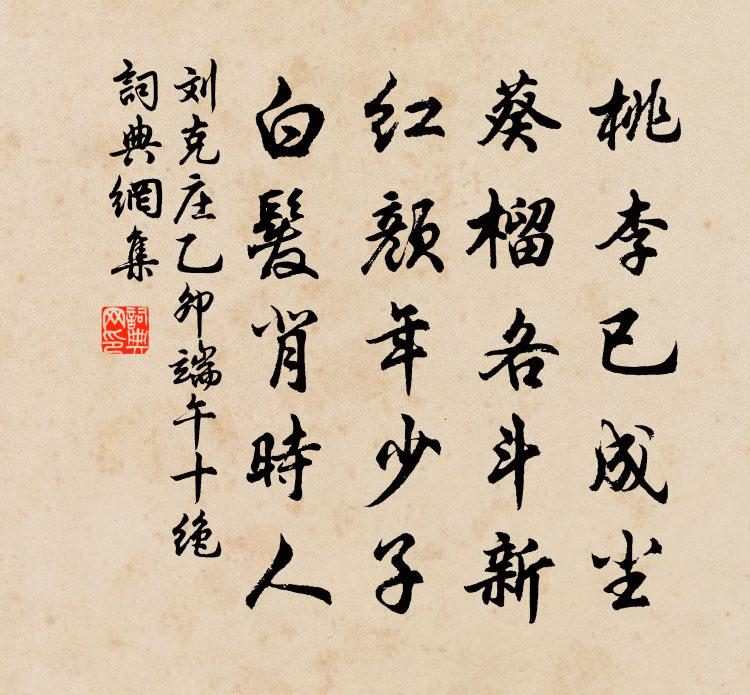 桃李已成尘
葵榴各斗新
红颜年少子
白髮背時人
刘克庄乙卯端午十绝
詞典網集
詞典
网印